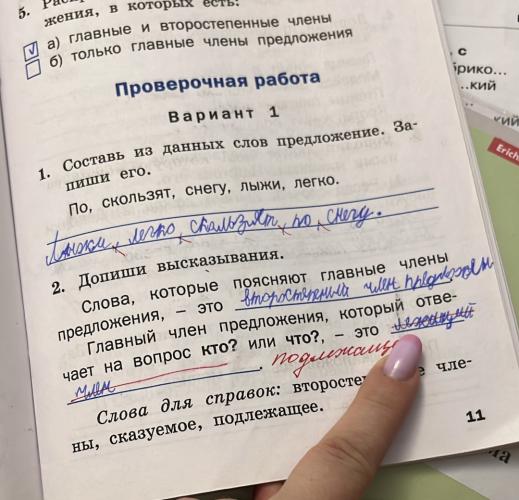 5. Расп
жения, в которых есть:
а) главные и второстепенные члены
б) только главные члены предложения
Проверочная работа
Вариант 1
1. Составь из данных слов предложение. За-
пиши его.
По, скользят, снегу, лыжи, легко.
легко скользят по снегу.
2. Допиши высказывания.
Слова, которые поясняют главные члены
предложения, – это второстепенный член
Главный член предложения, который отве-
чает на вопрос кто? или что?, – это
член подлежаще
Слова для справок: второстепе е чле-
ны, сказуемое, подлежащее.
11
с
брико...
..кий
кий
Erich